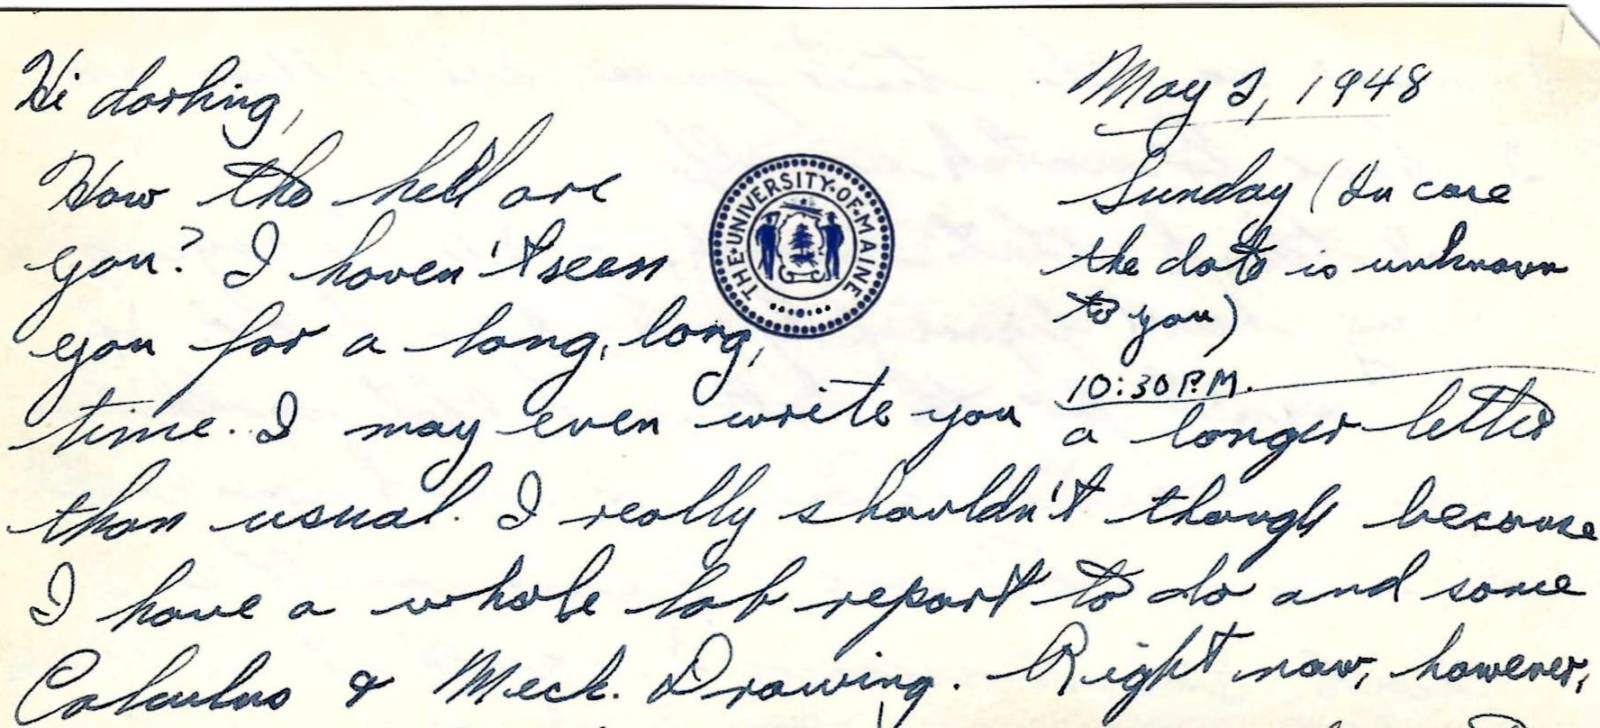 Hi darling,
May 2, 1948
Sunday (In case
the date is unknown
to you)
10:30 P.M.
THE·UNIVERSITY·OF·MAINE
How the hell are
you? I haven't seen
you for a long, long,
time. I may even write you a longer letter
than usual. I really shouldn't though because
I have a whole lab report to do and some
Calculus & Mech. Drawing. Right now, however,